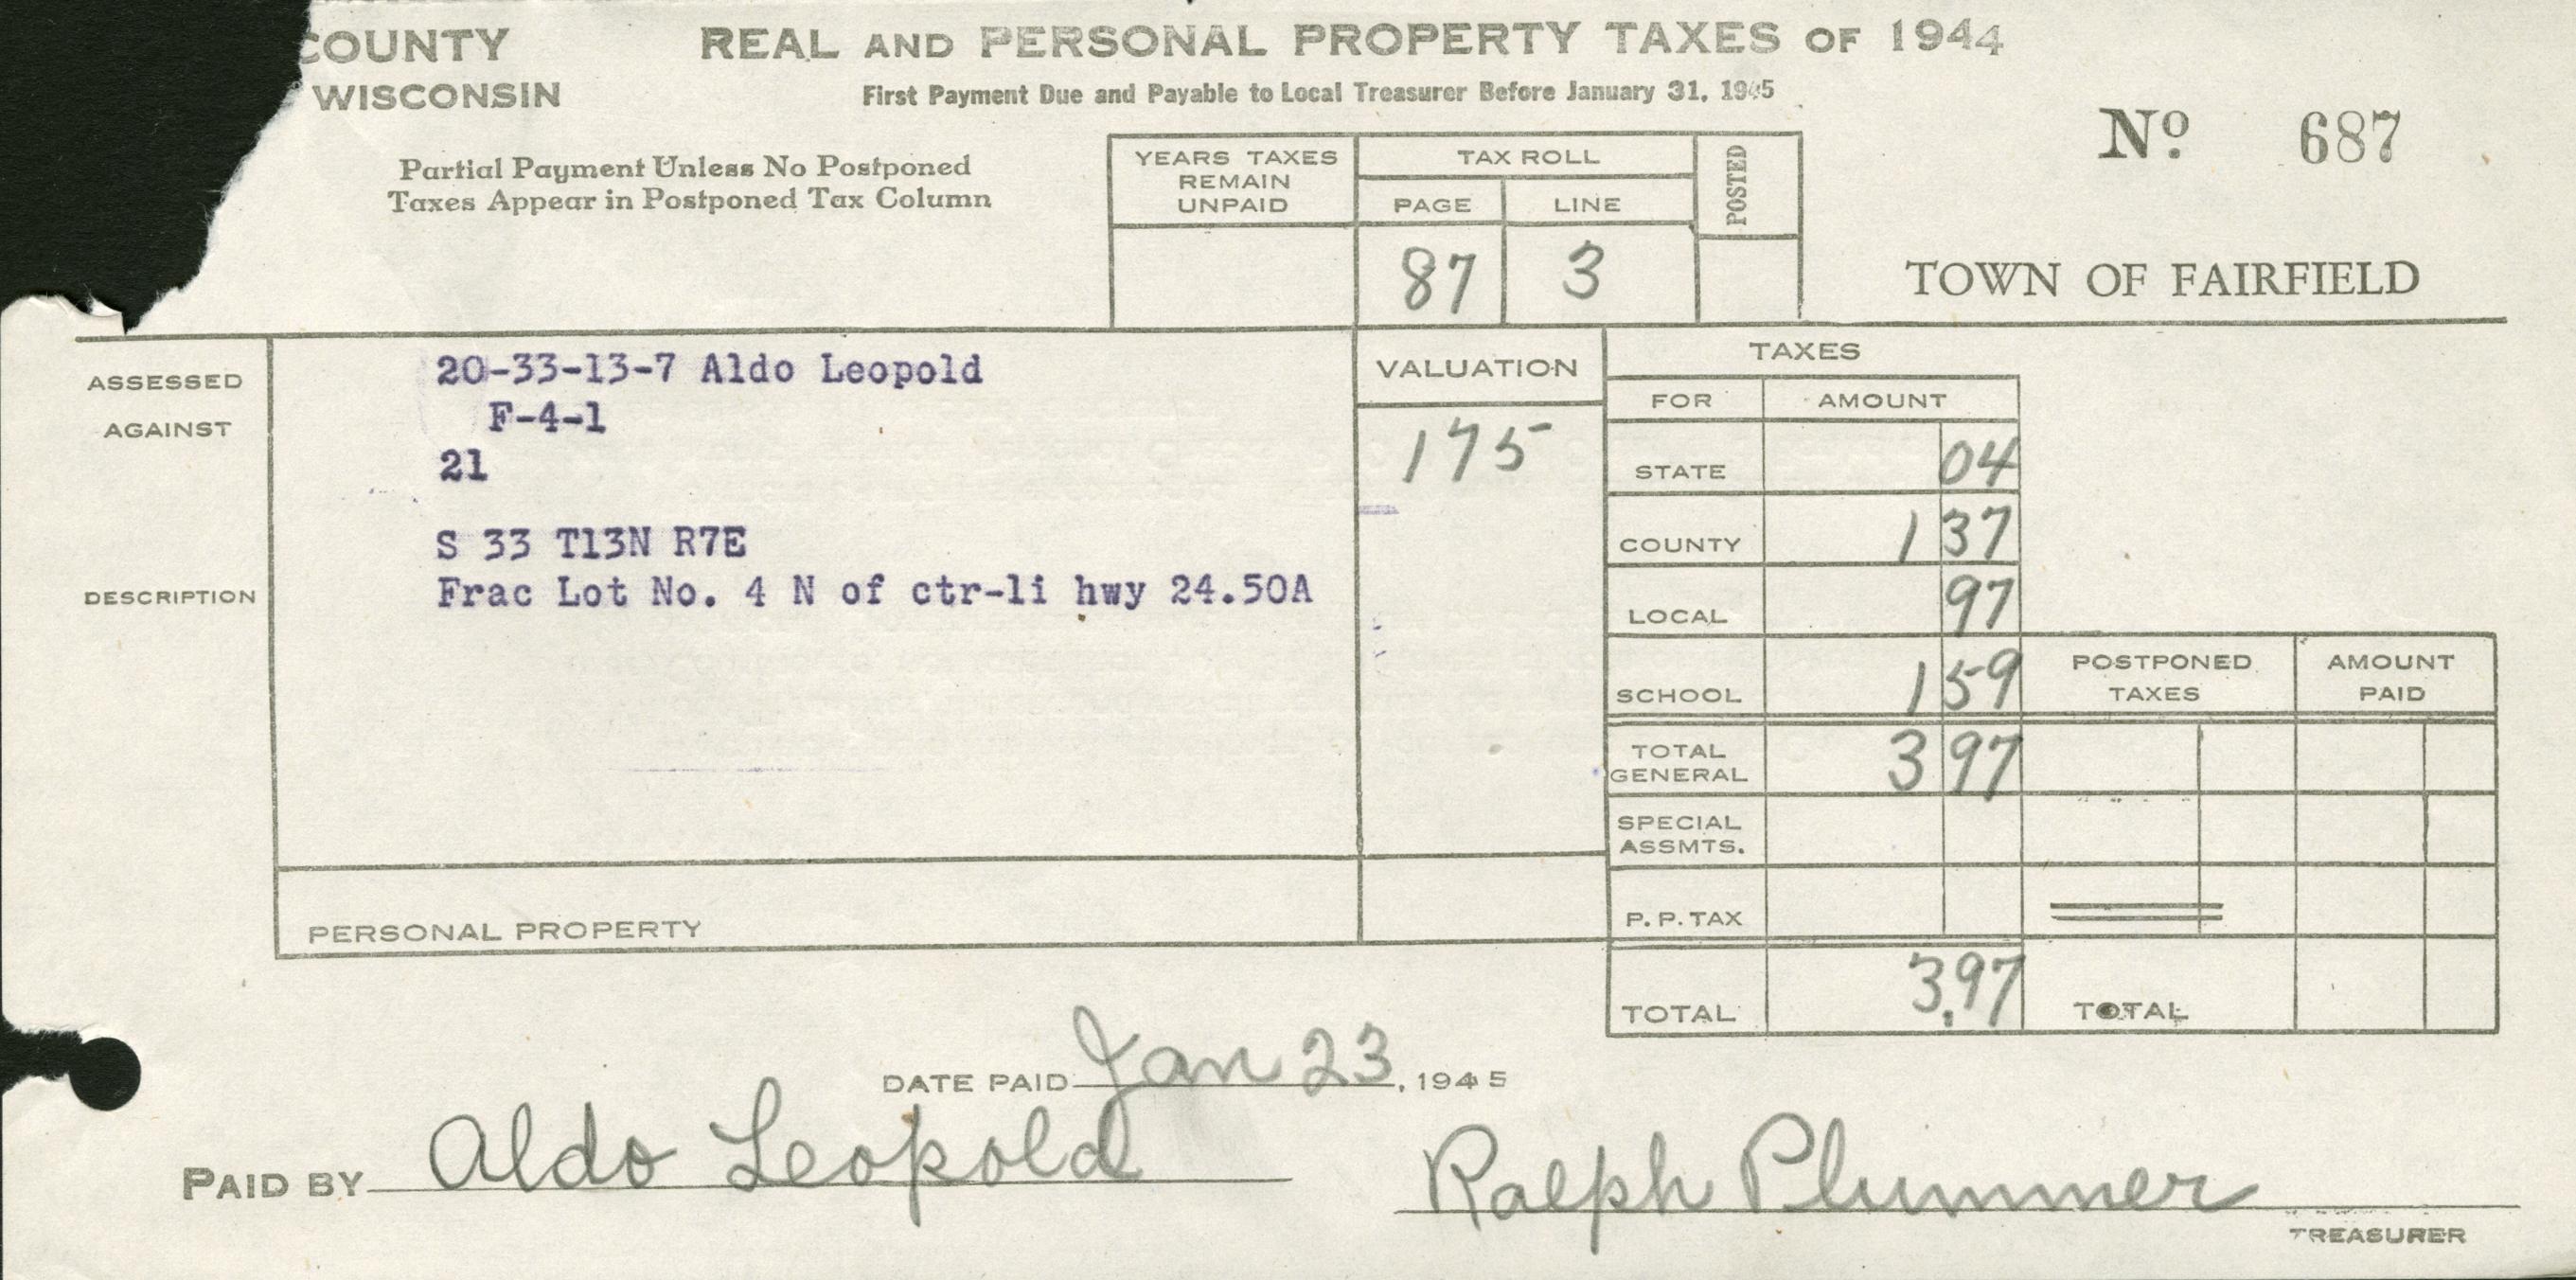 COUNTY
WISCONSIN
REAL AND PERSONAL PROPERTY TAXES OF 1944
First Payment Due and Payable to Local Treasurer Before January 31, 1945
Partial Payment Unless No Postponed
Taxes Appear in Postponed Tax Column
YEARS TAXES
REMAIN
UNPAID
TAX ROLL
PAGE
LINE
POSTED
87
3
No 687
TOWN OF FAIRFIELD
ASSESSED
AGAINST
20-33-13-7 Aldo Leopold
F-4-1
21
DESCRIPTION
S 33 T13N R7E
Frac Lot No. 4 N of ctr-li hwy 24.50A
PERSONAL PROPERTY
VALUATION
175
TAXES
FOR AMOUNT
STATE 04
COUNTY 1 37
LOCAL 97
SCHOOL 1 59
POSTPONED
TAXES
AMOUNT
PAID
TOTAL
GENERAL
3 97
SPECIAL
ASSMTS.
P. P. TAX
TOTAL 3.97 TOTAL
DATE PAID Jan 23, 1945
PAID BY Aldo Leopold
Ralph Plummer
TREASURER